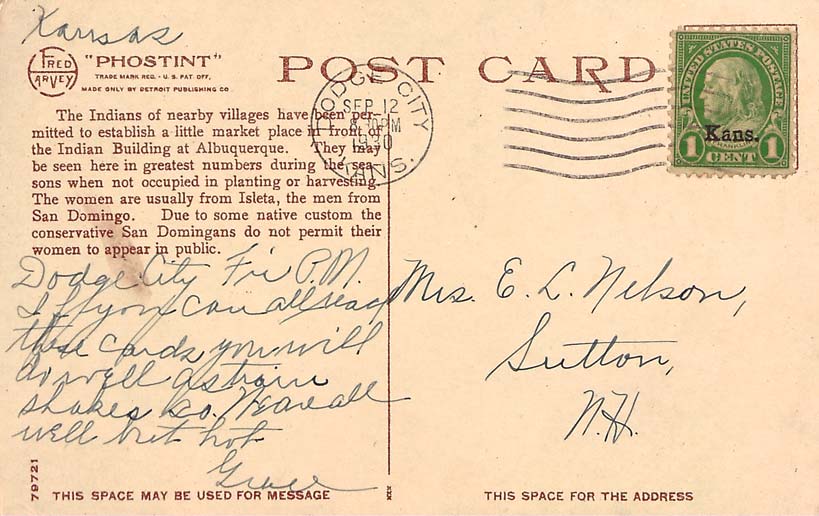 Kansas
FRED HARVEY
"PHOSTINT"
TRADE MARK REG. - U.S. PAT. OFF.
MADE ONLY BY DETROIT PUBLISHING CO
POST CARD
DODGE CITY
SEP 12
8 30 PM
1930
KANS.
UNITED STATES POSTAGE
Kans.
FRANKLIN
1 CENT 1
The Indians of nearby villages have been per-
mitted to establish a little market place in front of
the Indian Building at Albuquerque. They may
be seen here in greatest numbers during the sea-
sons when not occupied in planting or harvesting.
The women are usually from Isleta, the men from
San Domingo. Due to some native custom the
conservative San Domingans do not permit their
women to appear in public.
Dodge City Fri P.M.
If you can all read
these cards you will
do well as train
shakes so. We are all
well but hot
Grace
Mrs. E. L. Nelson,
Sutton,
N.H.
79721
THIS SPACE MAY BE USED FOR MESSAGE
XXX
THIS SPACE FOR THE ADDRESS